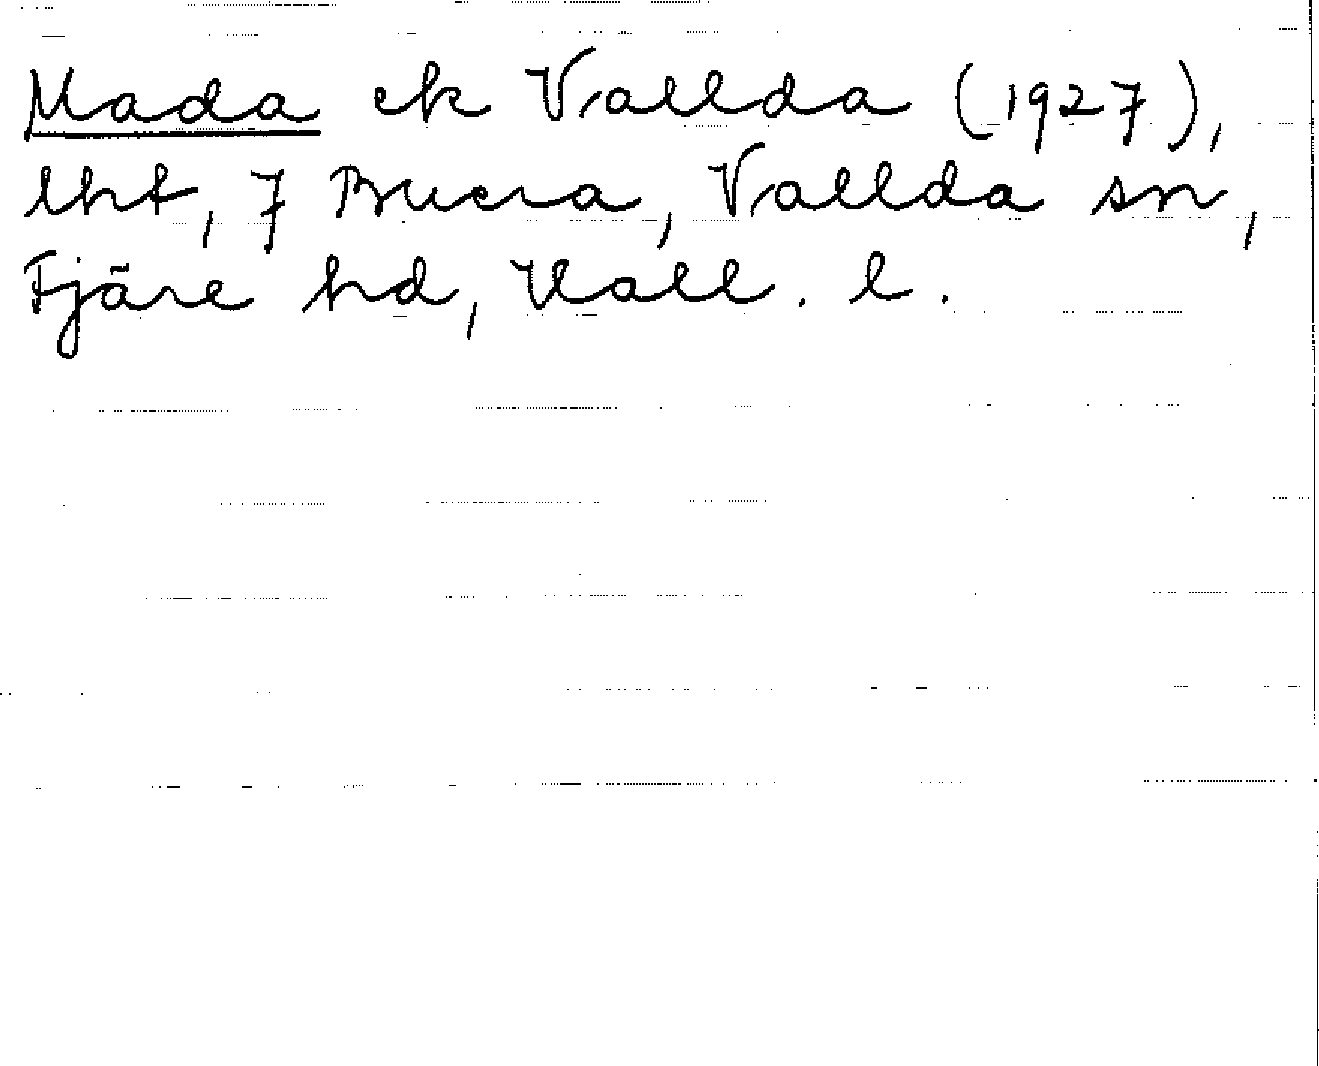 Mada ek Vallda (1927),
lht, 7 Buera, Vallda sn,
Fjäre hd, Hall. l.